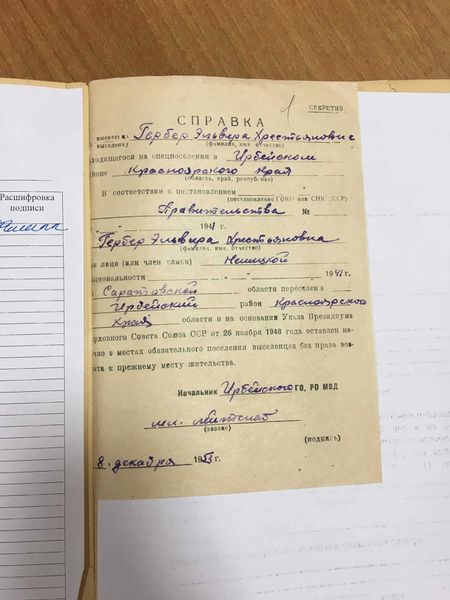 Расшифровка
подписи
1
СЕКРЕТНО
СПРАВКА
о выселен
выселенку Гербер Эльвира Хрестьяновне
(фамилия, имя, отчество)
аходящегося на спецпоселении в Ирбейском
йоне Красноярского Края
(область, край, республика)
В соответствии с постановлением
(постановление ГОКО или СНК СССР)
Правительства №
1941 г.
Гербер Эльвира Хрестьяновна
(фамилия, имя, отчество)
ак лицо (или член семьи) Немецкой
ациональности " " 1941 г.
з Саратовской области переселен в
Ирбейский район Красноярского
Края области и на основании Указа Президиума
ерховного Совета Союза ССР от 26 ноября 1948 года оставлен на-
ечно в местах обязательного поселения выселенцев без права воз-
ата к прежнему месту жительства.
Начальник Ирбейского ГО, РО МВД
мл. лейтенант
(звание)
(подпись)
8. декабря 1953 г.